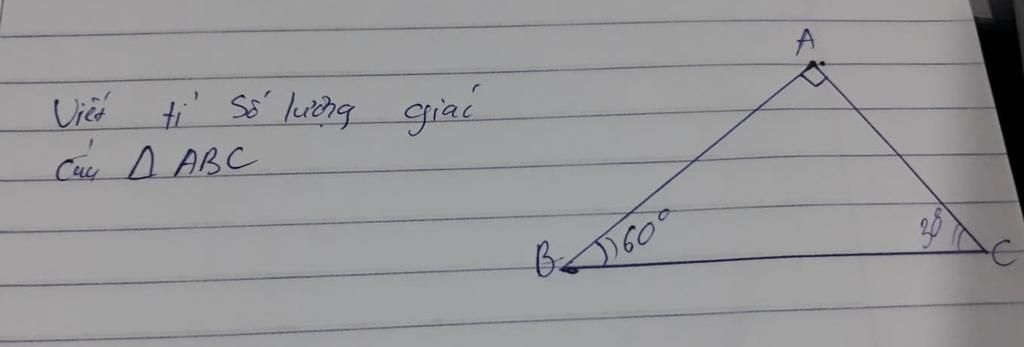 Viết tỉ số lượng giác
của Δ ABC
A
B 60° 30° C